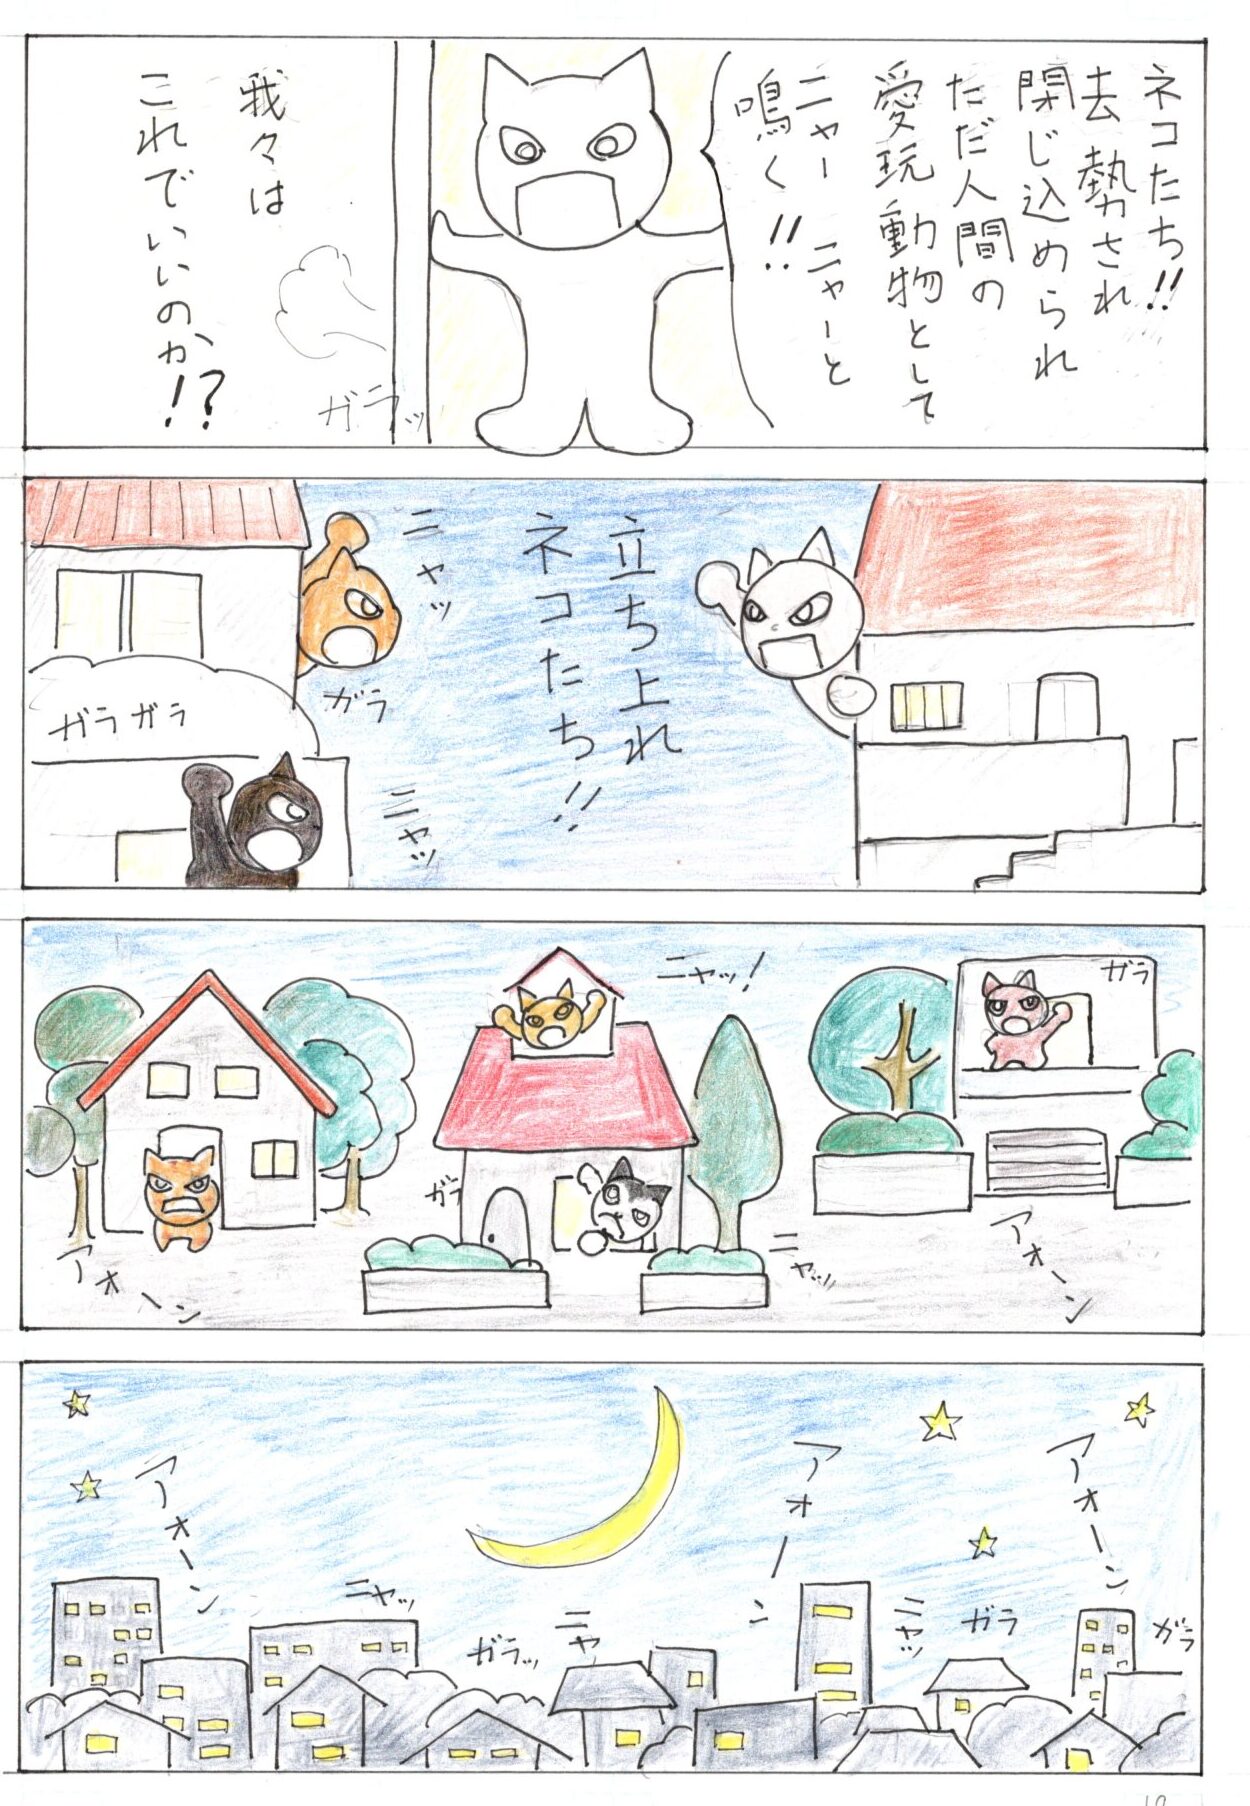 ネコたち!!
去勢され
閉じ込められ
ただ人間の
愛玩動物として
ニャーニャーと
鳴く!!
ガラッ
我々は
これでいいのか!?
立ち上れ
ネコたち!!
ニャッ
ガラ
ニャッ
ガラガラ
ガラ
アオーン
ニャッ!
ニャッ
ガラ
アオーン
アオーン
ガラ
ガラ
ニャッ
アオーン
ニャ
ガラッ
ニャッ
アオーン